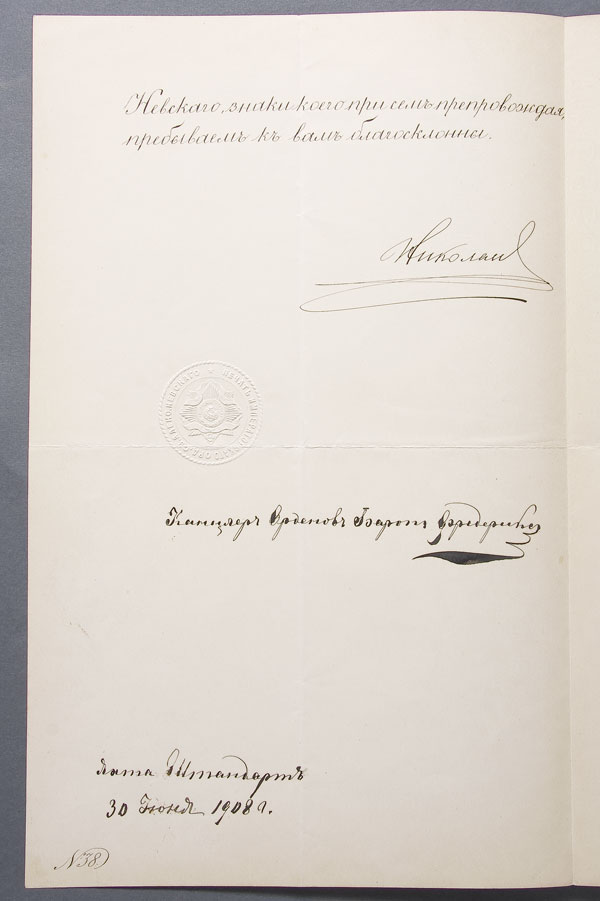 Невскаго, знаки коего при семъ препровождая,
пребываемъ къ вамъ благосклонны.
Николай
Канцлеръ Орденовъ Баронъ Фредериксъ
яхта Штандартъ
30 Іюня 1908 г.
№38